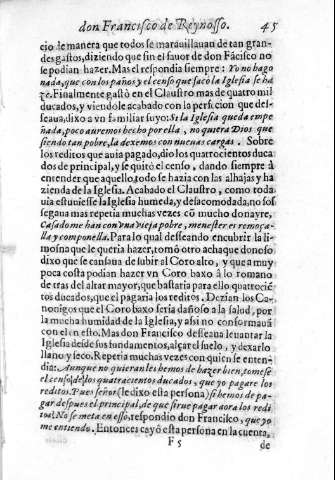 don Francisco de Reynosso. 45
cio de manera que todos se marauillauan de tan gran-
des gastos, diziendo que sin el fauor de don Fácisco no
se podian hazer. Mas el respondia siempre: Yo no hago
nada, que con los paños y el censo que sacó la Iglesia se ha
ze. Finalmente gastò en el Claustro mas de quatro mil
ducados, y viendole acabado con la perfecion que des-
seaua, dixo a vn familiar suyo: Si la Iglesia queda empe
ñada, poco auremos hecho por ella, no quiera Dios que
siendo tan pobre, la dexemos con nueuas cargas. Sobre
los reditos que auia pagado, dio los quatrocientos duca
dos de principal, y se quitò el censo, dando siempre à
entender que aquello todo se hazia con las alhajas y ha
zienda de la Iglesia. Acabado el Claustro, como toda
uia estuuiesse la Iglesia humeda, y desacomodada, no sos
segaua mas repetia muchas vezes cō mucho donayre,
Casadome han con vna vieja pobre, menester es remoça-
lla y componella. Para lo qual desseando encubrir la li-
mosna que le queria hazer, tomó otro achaque donoso
dixo que se cansaua de subir al Coro alto, y que a muy
poca costa podian hazer vn Coro baxo à lo romano
de tras del altar mayor, que bastaria para ello quatrociē
tos ducados, que el pagaria los reditos. Dezian los Ca-
nonigos que el Coro baxo seria dañoso a la salud, por
la mucha humidad de la Iglesia, y assi no conformauā
con el en esto. Mas don Francisco desseaua leuantar la
Iglesia desde sus fundamentos, alçar el suelo, y dexarlo
llano y seco. Repetia muchas vezes con quien se enten-
dia: Aunque no quieran les hemos de hazer bien, tomese
el censo de los quatrocientos ducados, que yo pagare los
reditos. Pues señor (le dixo esta persona) si hemos de pa-
gar despues el principal, de que sirue pagar aora los redi
tos? No se meta en esso, respondio don Francisco, que yo
me entiendo. Entonces cayó esta persona en la cuenta,
F 5 de